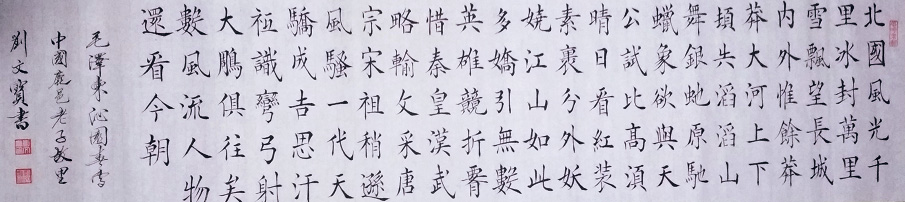 北國風光千
里冰封萬里
雪飄望長城
內外惟餘莽
莽大河上下
頓失滔滔山
舞銀虵原馳
蠟象欲與天
公試比高須
晴日看紅裝
素裹分外妖
嬈江山如此
多嬌引無數
英雄競折腰
惜秦皇漢武
略輸文采唐
宗宋祖稍遜
風騷一代天
驕成吉思汗
祗識彎弓射
大鵰俱往矣
數風流人物
還看今朝
毛澤東沁園春雪
中國鹿邑老子故里
劉文寶書